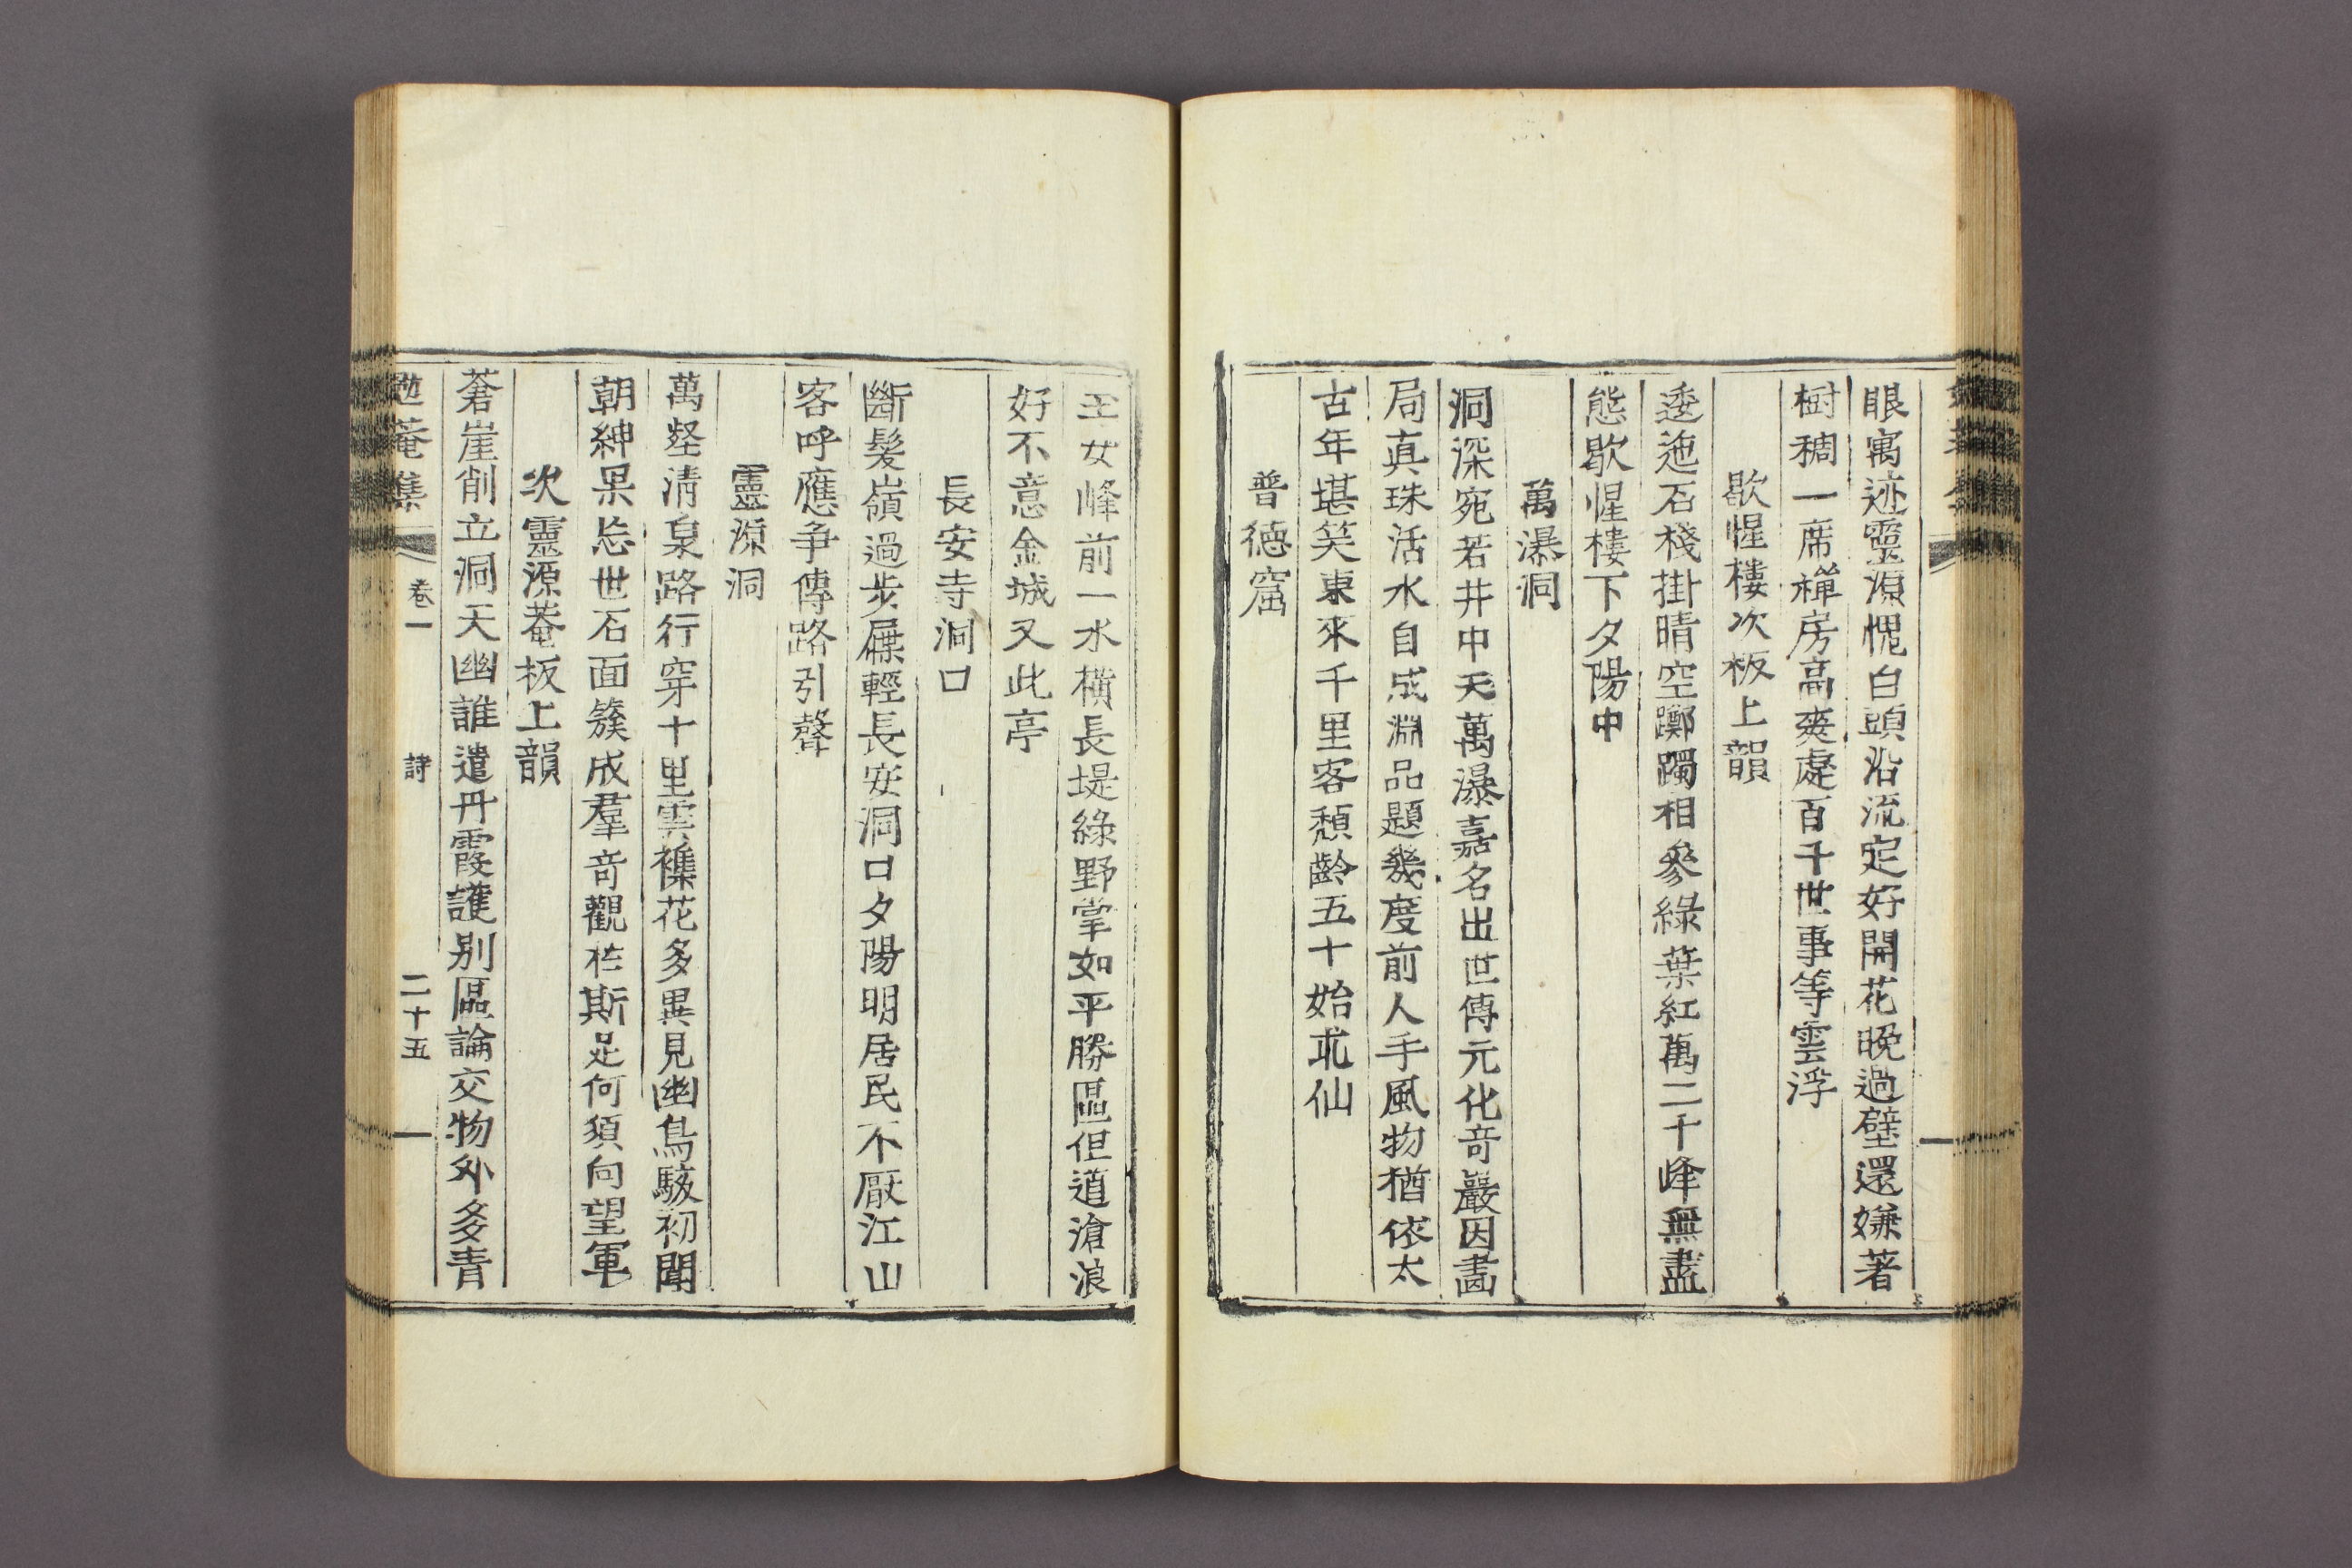 眼寓迹靈源愧白頭沿流定好開花晚過壁還嫌著
樹稠一席禪房高爽處百千世事等雲浮
歇惺樓次板上韻
逶迤石棧掛晴空躑躅相參綠葉紅萬二千峰無盡
態歇惺樓下夕陽中
萬瀑洞
洞深宛若井中天萬瀑嘉名出世傳元化奇巖因畵
局真珠活水自成淵品題幾度前人手風物猶依太
古年堪笑東來千里客頹齡五十始求仙
普德窟
玉女峰前一水橫長堤綠野掌如平勝區但道滄浪
好不意金城又此亭
長安寺洞口
斷髮嶺過步屧輕長安洞口夕陽明居民不厭江山
客呼應争傳路引聲
靈源洞
萬壑清泉路行穿十里雲襍花多異見幽鳥駭初聞
朝紳果忘世石面簇成羣奇觀在斯足何須向望軍
次靈源菴板上韻
蒼崖削立洞天幽誰遣丹霞護别區論交物外多青
菴集 卷一 詩 二十五